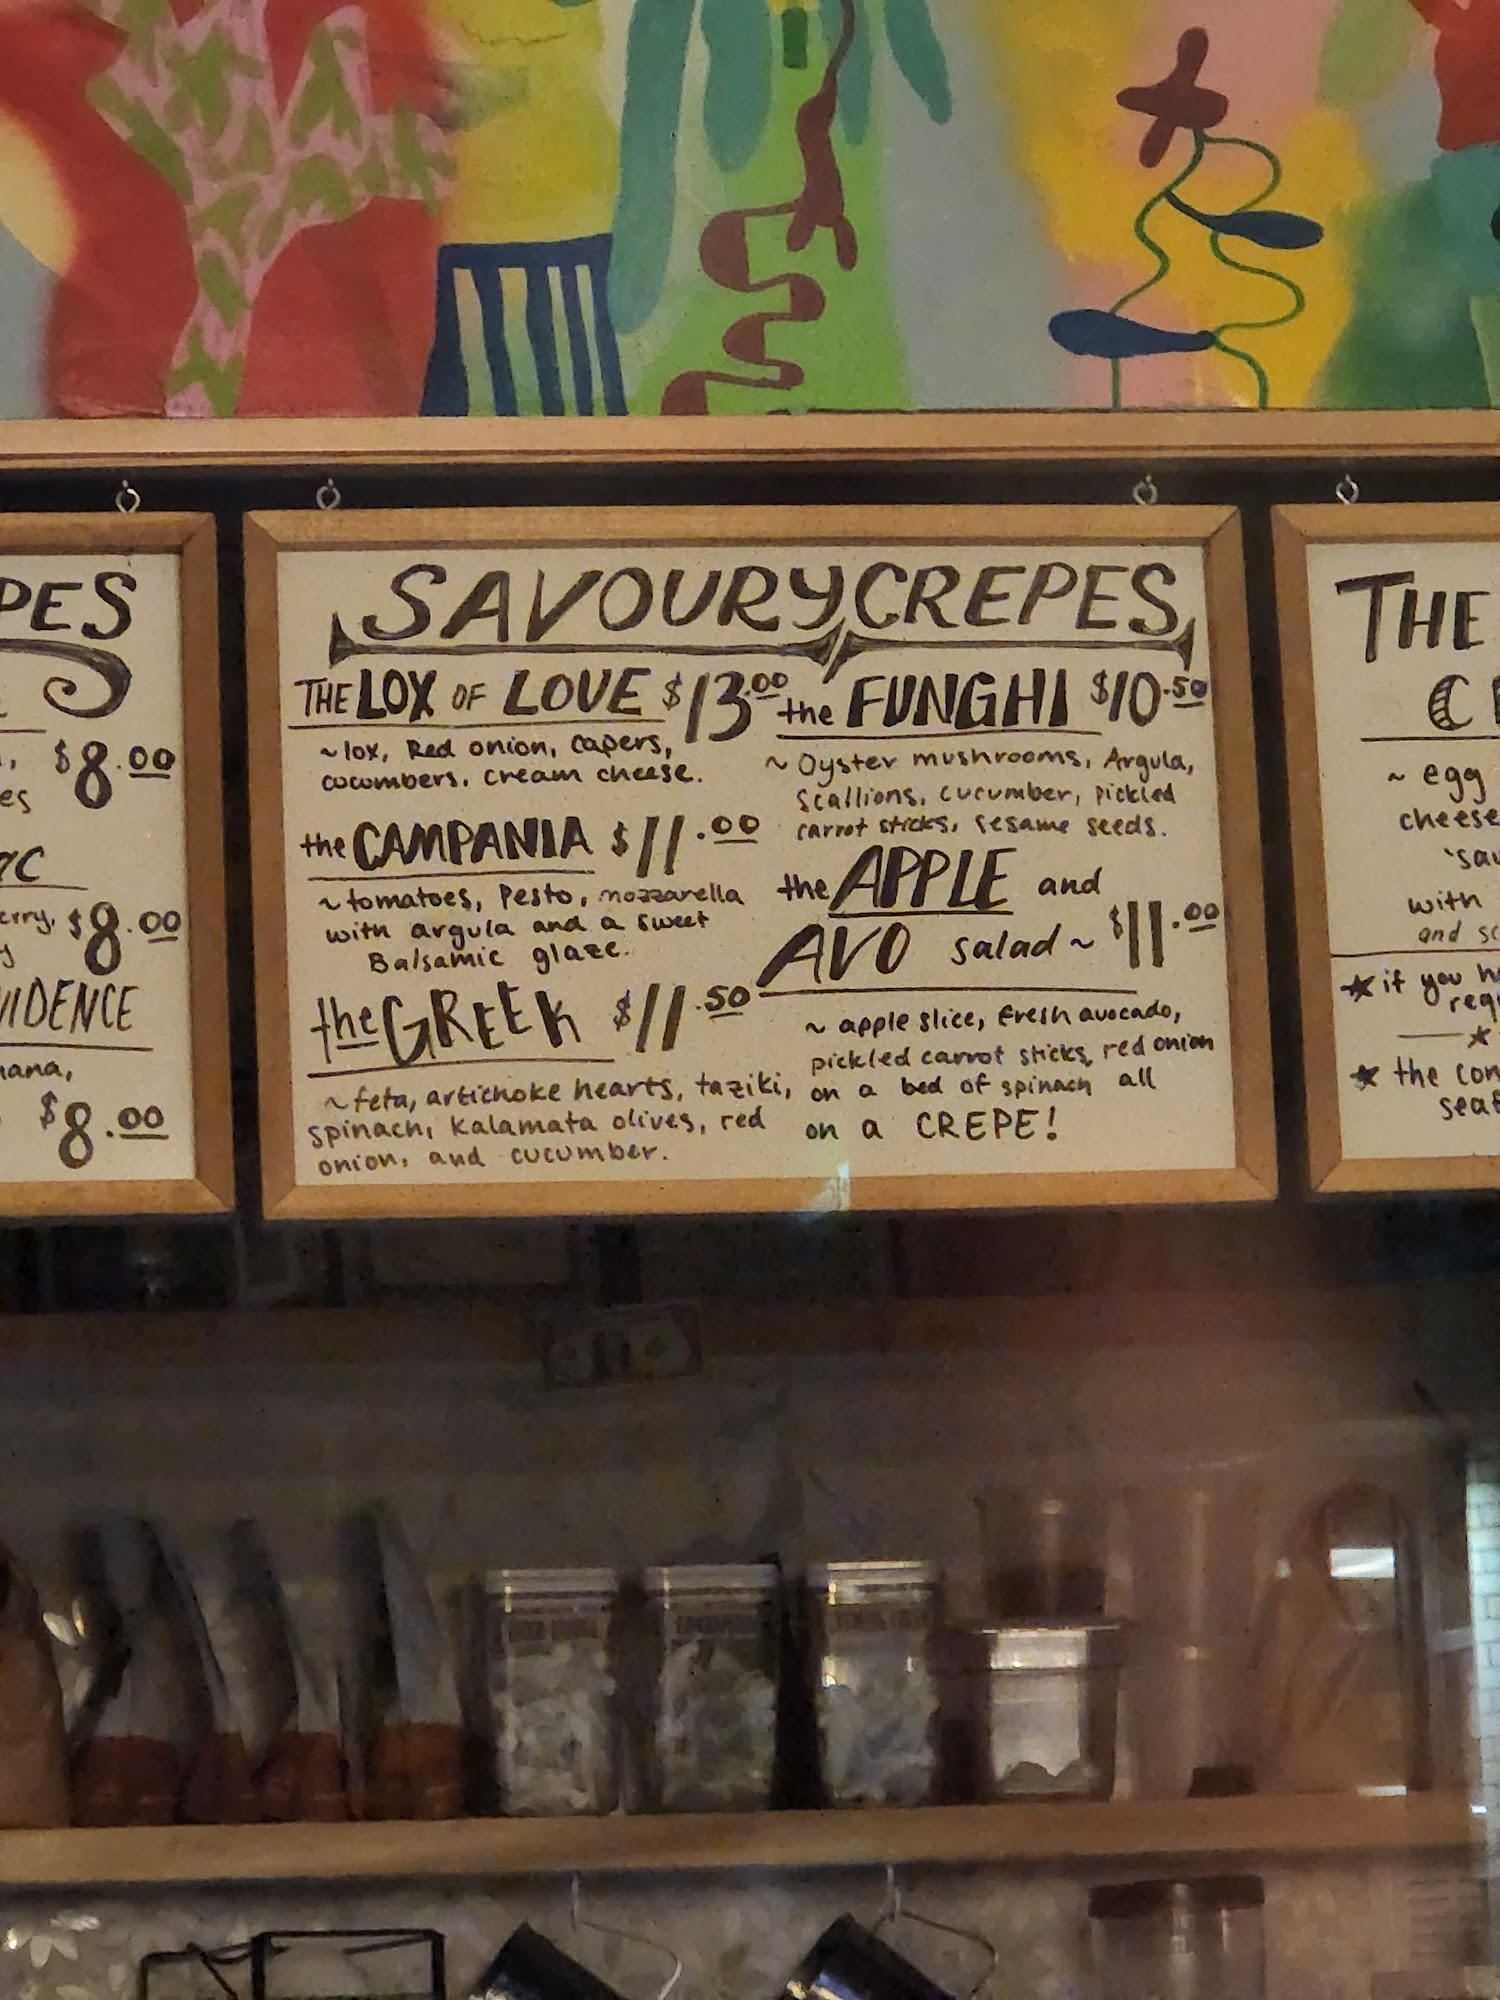 PES
$8.00
es
erry, $8.00
y
VIDENCE
nana,
$8.00
SAVOURY CREPES
THE LOX OF LOVE $13.00
~lox, Red onion, capers,
cucumbers, cream cheese.
the CAMPANIA $11.00
~tomatoes, Pesto, mozzarella
with argula and a sweet
Balsamic glaze.
the GREEK $11.50
~feta, artichoke hearts, taziki,
spinach, kalamata olives, red
onion, and cucumber.
the FUNGHI $10.50
~ Oyster mushrooms, Argula,
scallions, cucumber, pickled
carrot sticks, sesame seeds.
the APPLE and
AVO salad ~ $11.00
~ apple slice, fresh avocado,
pickled carrot sticks, red onion
on a bed of spinach all
on a CREPE!
THE
C
~ egg
cheese
'sau
with
and sc
★ if you h
requ
★
★ the con
seaf